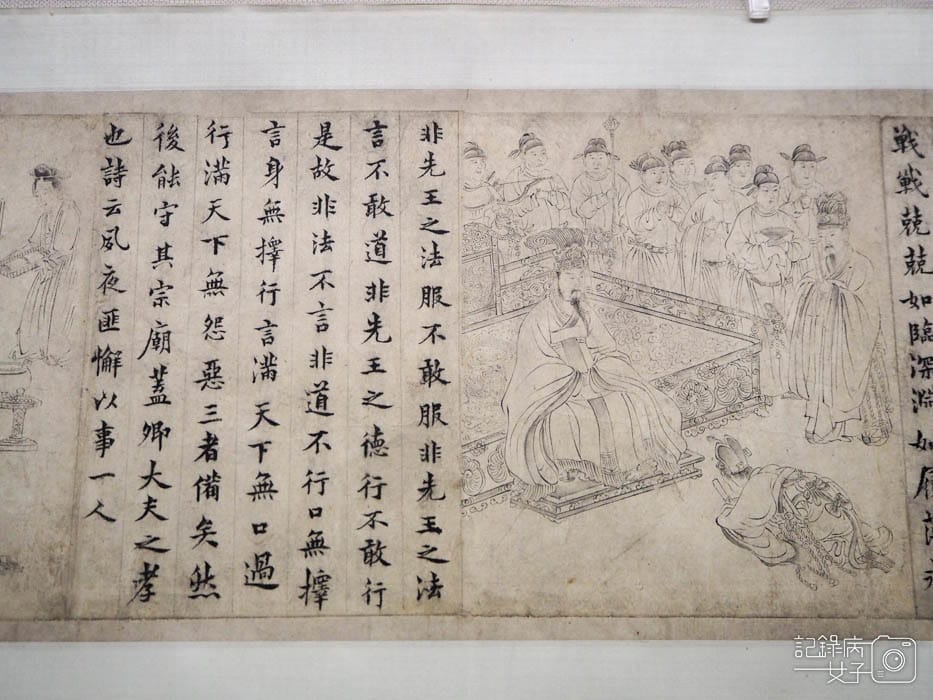 戰戰兢兢如臨深淵如履薄
非先王之法服不敢服非先王之法
言不敢道非先王之德行不敢行
是故非法不言非道不行口無擇
言身無擇行言滿天下無口過
行滿天下無怨惡三者備矣然
後能守其宗廟蓋卿大夫之孝
也詩云夙夜匪懈以事一人
記錄病
女子